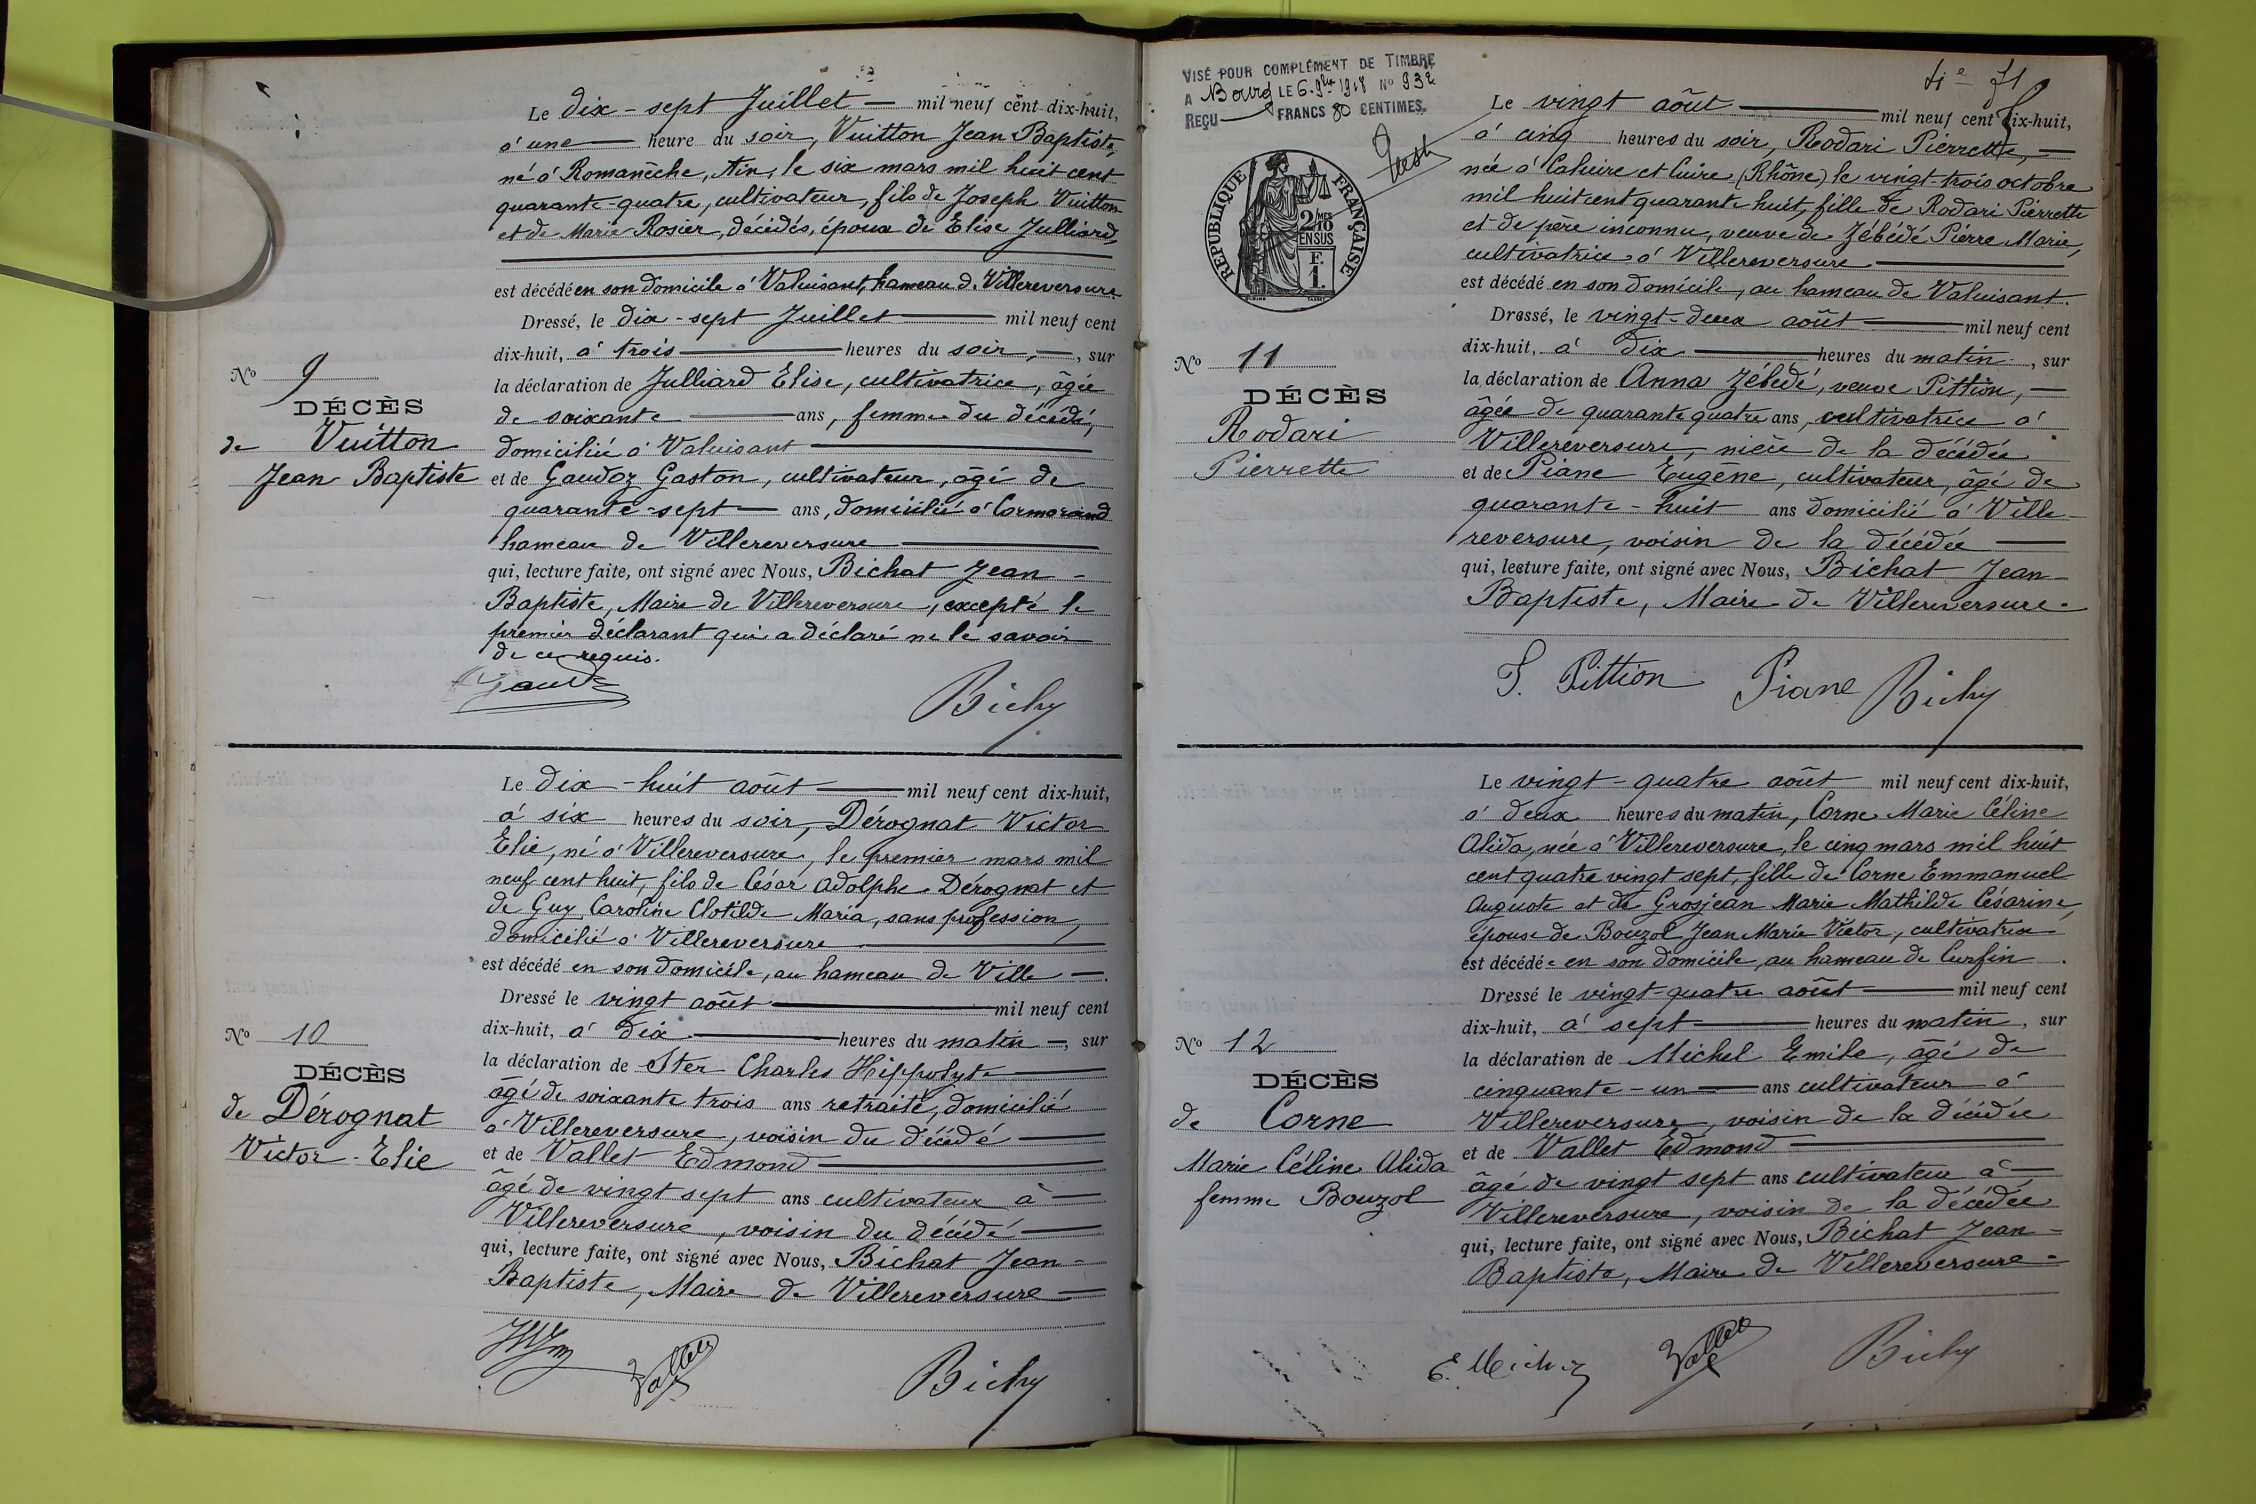 Le dix-sept Juillet mil neuf cent dix-huit,
à une heure du soir, Vuitton Jean Baptiste,
né à Romanèche, Ain, le six mars mil huit cent
quarante-quatre, cultivateur, fils de Joseph Vuitton
et de Marie Rosier, décédés, époux de Elise Julliard,
est décédé en son domicile à Valuisant, hameau de Villereversure
Dressé, le dix-sept Juillet mil neuf cent
dix-huit, à trois heures du soir, sur
No 9
DÉCÈS
de Vuitton
Jean Baptiste
la déclaration de Julliard Elise, cultivatrice, âgée
de soixante ans, femme du décédé,
domiciliée à Valuisant
et de Gaudoz Gaston, cultivateur, âgé de
quarante-sept ans, domicilié à Cormorand
hameau de Villereversure
qui, lecture faite, ont signé avec Nous, Bichat Jean-
Baptiste, Maire de Villereversure, excepté le
premier déclarant qui a déclaré ne le savoir
de ce requis.
Le dix-huit août mil neuf cent dix-huit,
à six heures du soir, Dérognat Victor
Elie, né à Villereversure, le premier mars mil
neuf cent huit, fils de César Adolphe Dérognat et
de Guy Caroline Clotilde Maria, sans profession,
domicilié à Villereversure
est décédé en son domicile, au hameau de Ville
Dressé le vingt août mil neuf cent
dix-huit, à dix heures du matin, sur
No 10
DÉCÈS
de Dérognat
Victor-Elie
la déclaration de Ster Charles Hippolyte
âgé de soixante trois ans retraité, domicilié
à Villereversure, voisin du décédé
et de Vallet Edmond
âgé de vingt sept ans cultivateur à
Villereversure, voisin du décédé
qui, lecture faite, ont signé avec Nous, Bichat Jean-
Baptiste, Maire de Villereversure
Vallet
VISÉ POUR COMPLÉMENT DE TIMBRE
A Bourg LE 6-9bre 1918 No 932
REÇU FRANCS 80 CENTIMES
RÉPUBLIQUE FRANÇAISE
2/10 MES
EN SUS
F.
1.
Le vingt août mil neuf cent dix-huit,
à cinq heures du soir, Rodari Pierrette,
née à Caluire et Cuire (Rhône) le vingt-trois octobre
mil huit cent quarante huit, fille de Rodari Pierrette
et de père inconnu, veuve de Zébédé Pierre Marie,
cultivatrice à Villereversure
est décédé en son domicile, au hameau de Valuisant.
Dressé, le vingt-deux août mil neuf cent
dix-huit, à dix heures du matin, sur
No 11
DÉCÈS
Rodari
Pierrette
la déclaration de Anna Zébédé, veuve Pittion,
âgée de quarante quatre ans, cultivatrice à
Villereversure, nièce de la décédée
et de Piane Eugène, cultivateur, âgé de
quarante-huit ans domicilié à Ville-
reversure, voisin de la décédée
qui, lecture faite, ont signé avec Nous, Bichat Jean-
Baptiste, Maire de Villereversure.
Pittion Piane
Le vingt-quatre août mil neuf cent dix-huit,
à deux heures du matin, Corne Marie Céline
Alida, née à Villereversure, le cinq mars mil huit
cent quatre vingt sept, fille de Corne Emmanuel
Auguste et de Grosjean Marie Mathilde Césarine,
épouse de Bouzol Jean Marie Victor, cultivatrice
est décédée en son domicile, au hameau de Curfin.
Dressé le vingt-quatre août mil neuf cent
dix-huit, à sept heures du matin, sur
No 12
DÉCÈS
de Corne
Marie Céline Alida
femme Bouzol
la déclaration de Michel Emile, âgé de
cinquante-un ans cultivateur à
Villereversure, voisin de la décédée
et de Vallet Edmond
âgé de vingt sept ans cultivateur à
Villereversure, voisin de la décédée
qui, lecture faite, ont signé avec Nous, Bichat Jean-
Baptiste, Maire de Villereversure
E. Michel Vallet